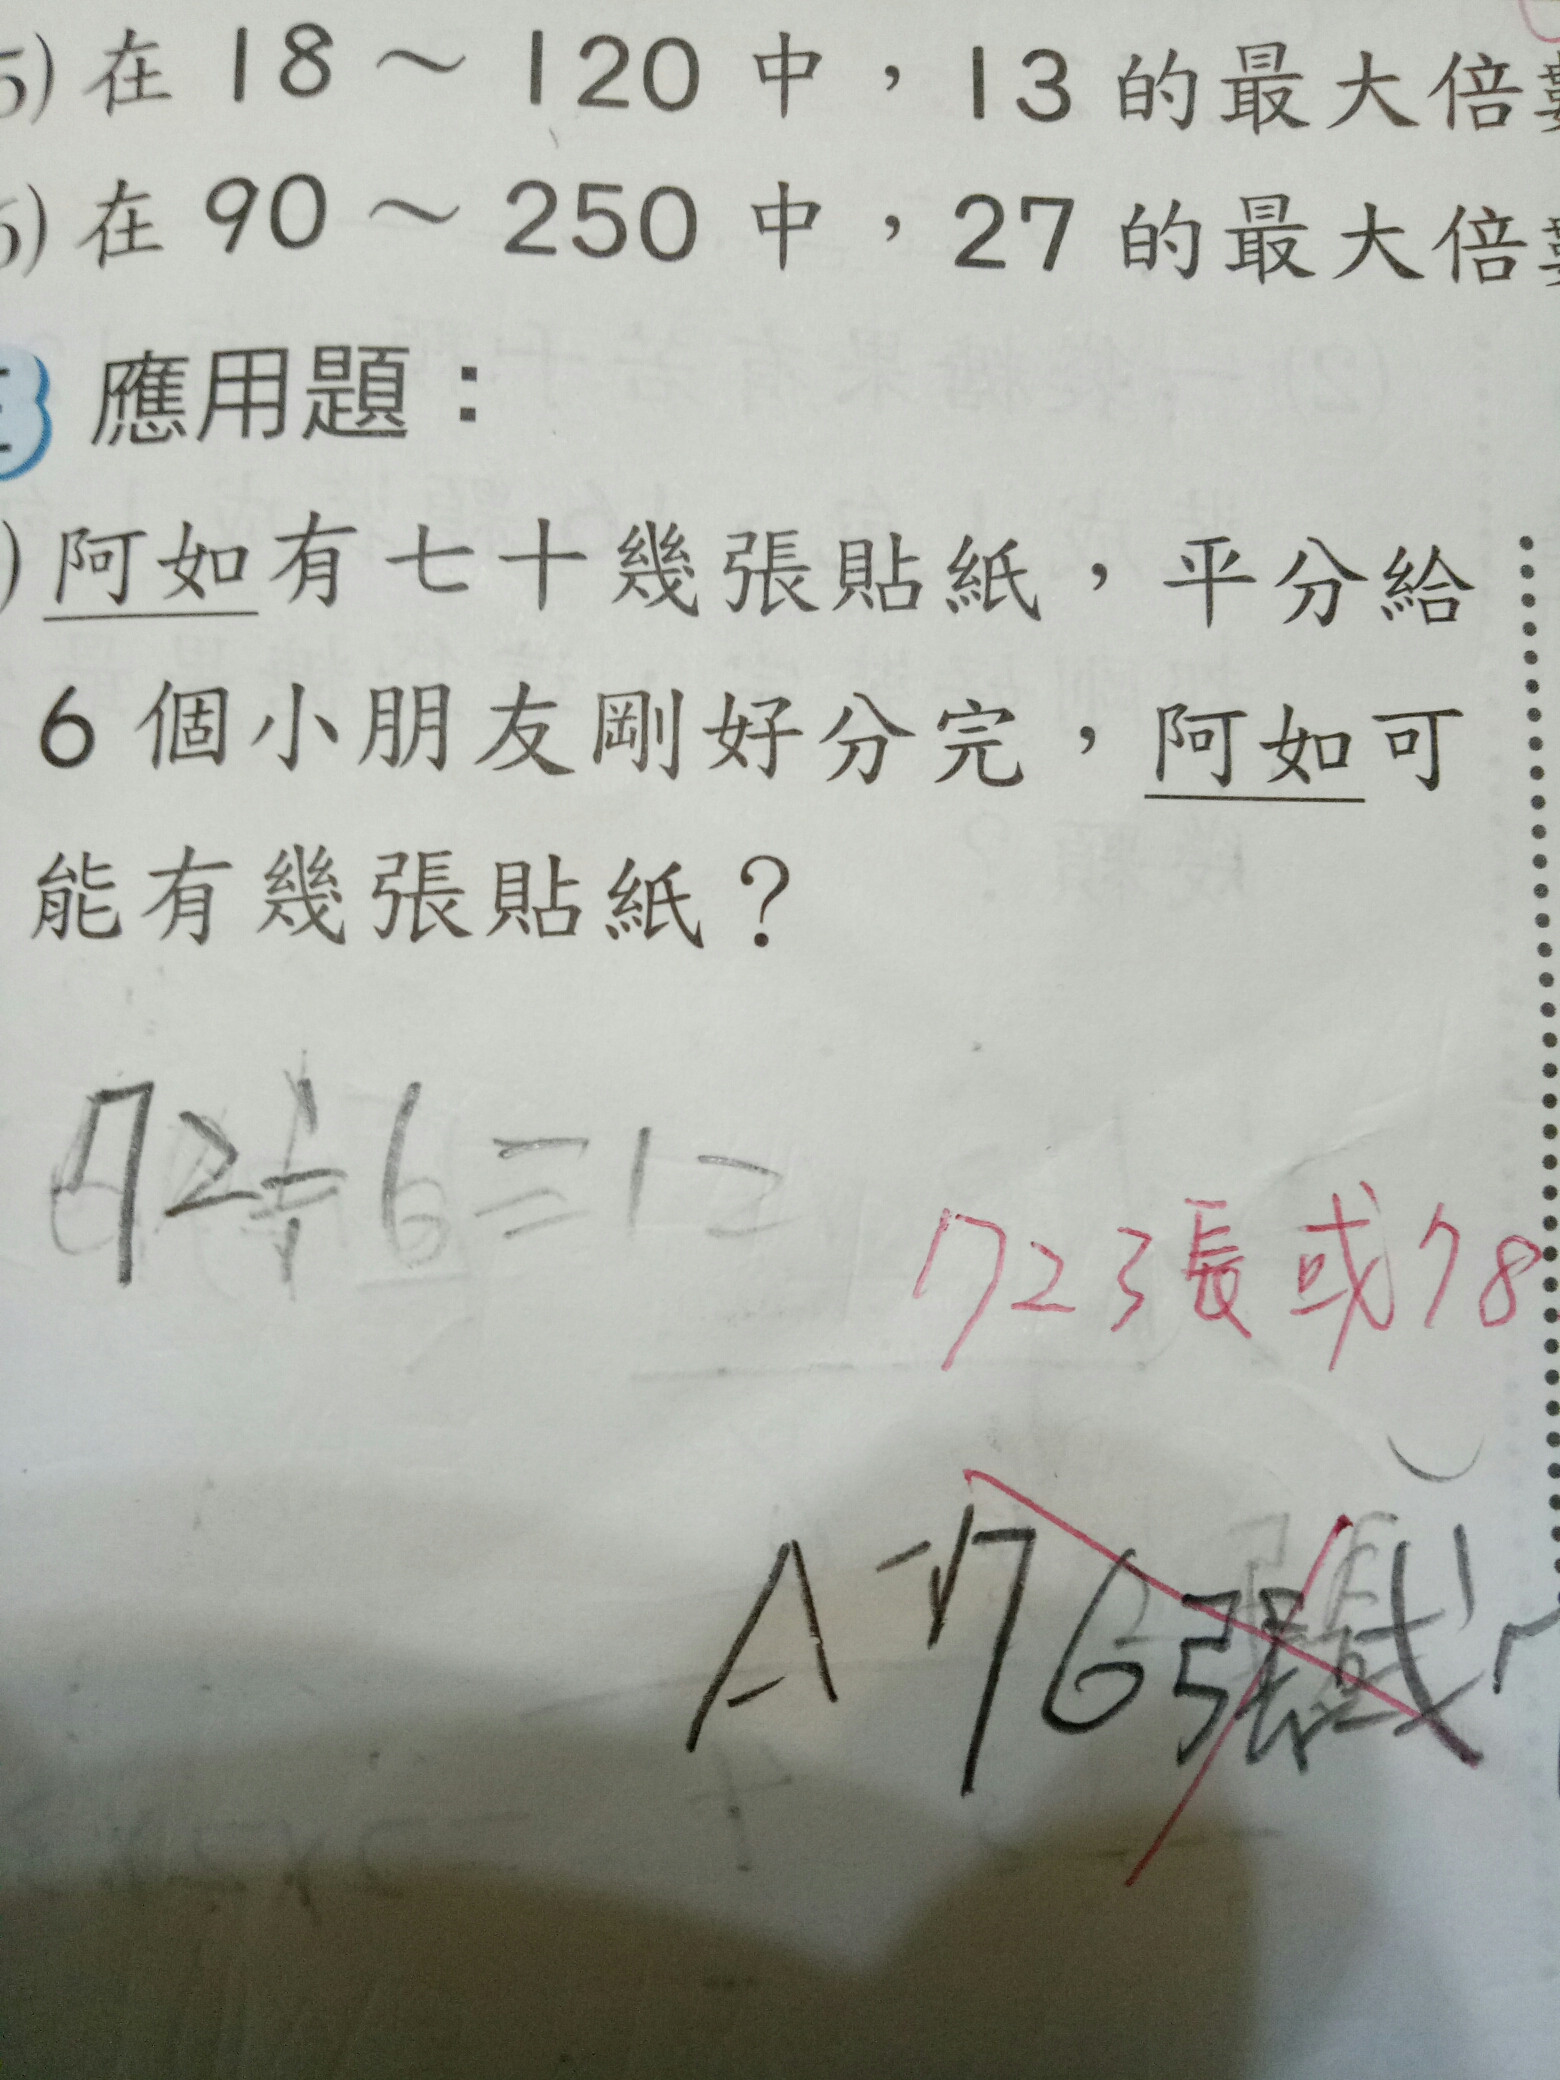 5) 在 18 ～ 120 中，13 的最大倍數
6) 在 90 ～ 250 中，27 的最大倍數
應用題：
) 阿如有七十幾張貼紙，平分給
6 個小朋友剛好分完，阿如可
能有幾張貼紙？
72÷6=12
72張或78
A 76張或